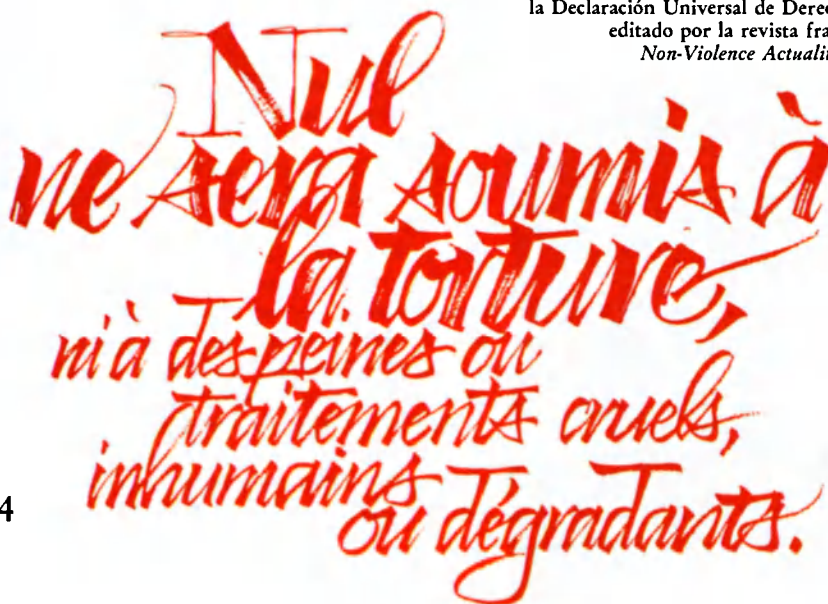 la Declaración Universal de Derec
editado por la revista fra
Non-Violence Actuali
Nul
ne sera soumis à
la torture,
ni à des peines ou
traitements cruels,
inhumains
ou dégradants.
4